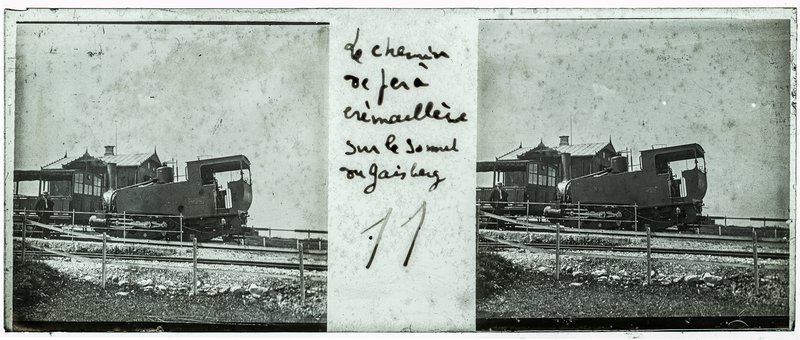 Le chemin
de fer à
crémaillère
sur le sommet
du Gaisberg
11